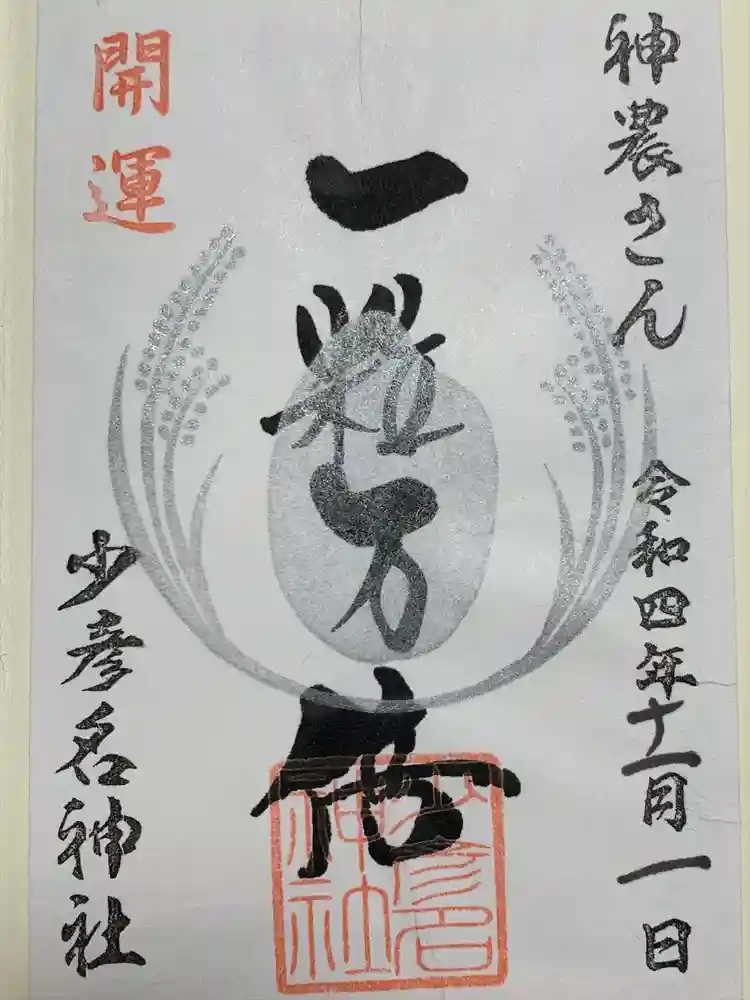 神農さん
令和四年十一月一日
一粒万倍
少彦名
神社
開運
少彦名神社